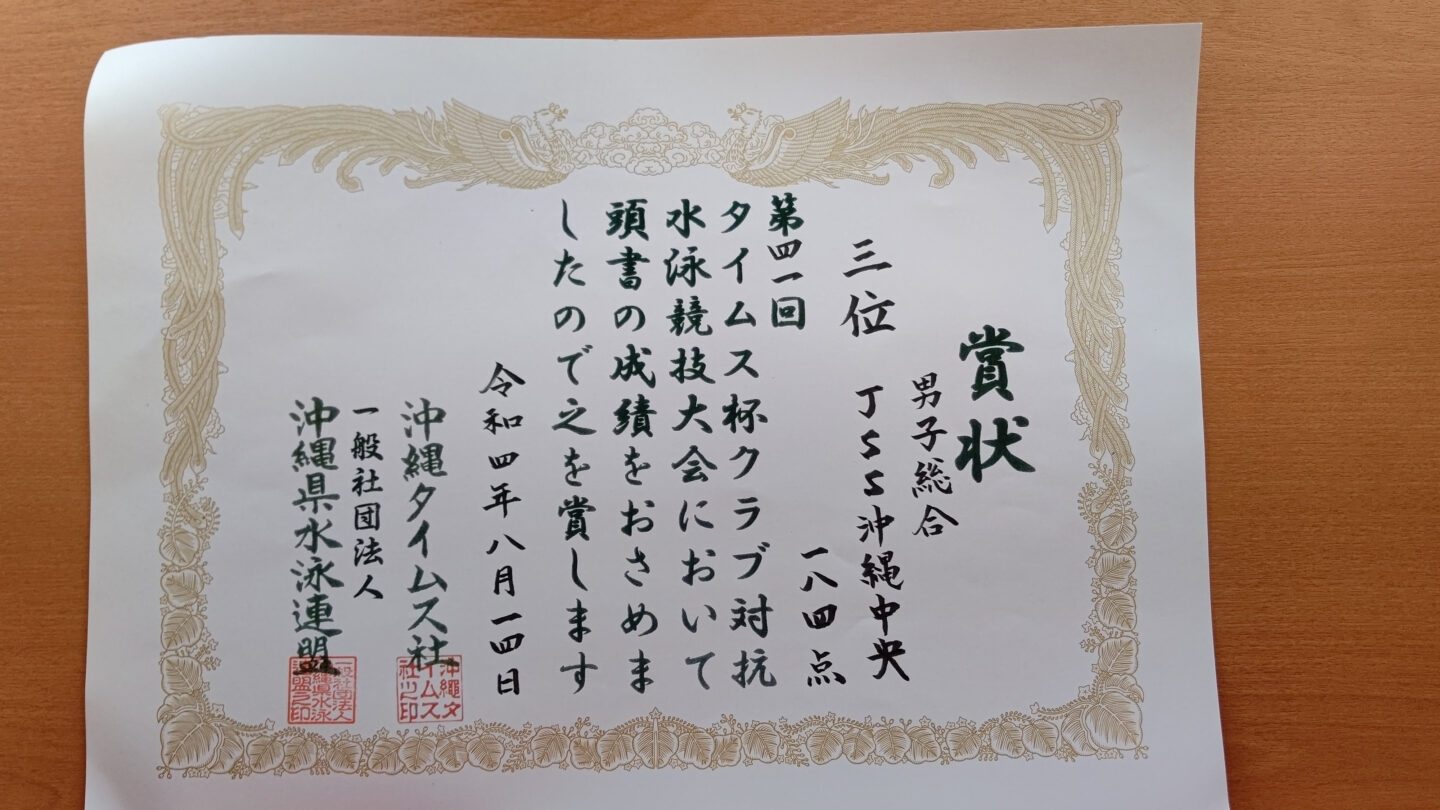 賞状
男子総合
三位
JSS沖縄中央
一八四点
第四一回
タイムス杯クラブ対抗
水泳競技大会において
頭書の成績をおさめま
したので之を賞します
令和四年八月一四日
沖縄タイムス社
一般社団法人
沖縄県水泳連盟
沖縄タ
イムス
社之印
一般社団法人
沖縄県水泳
連盟之印